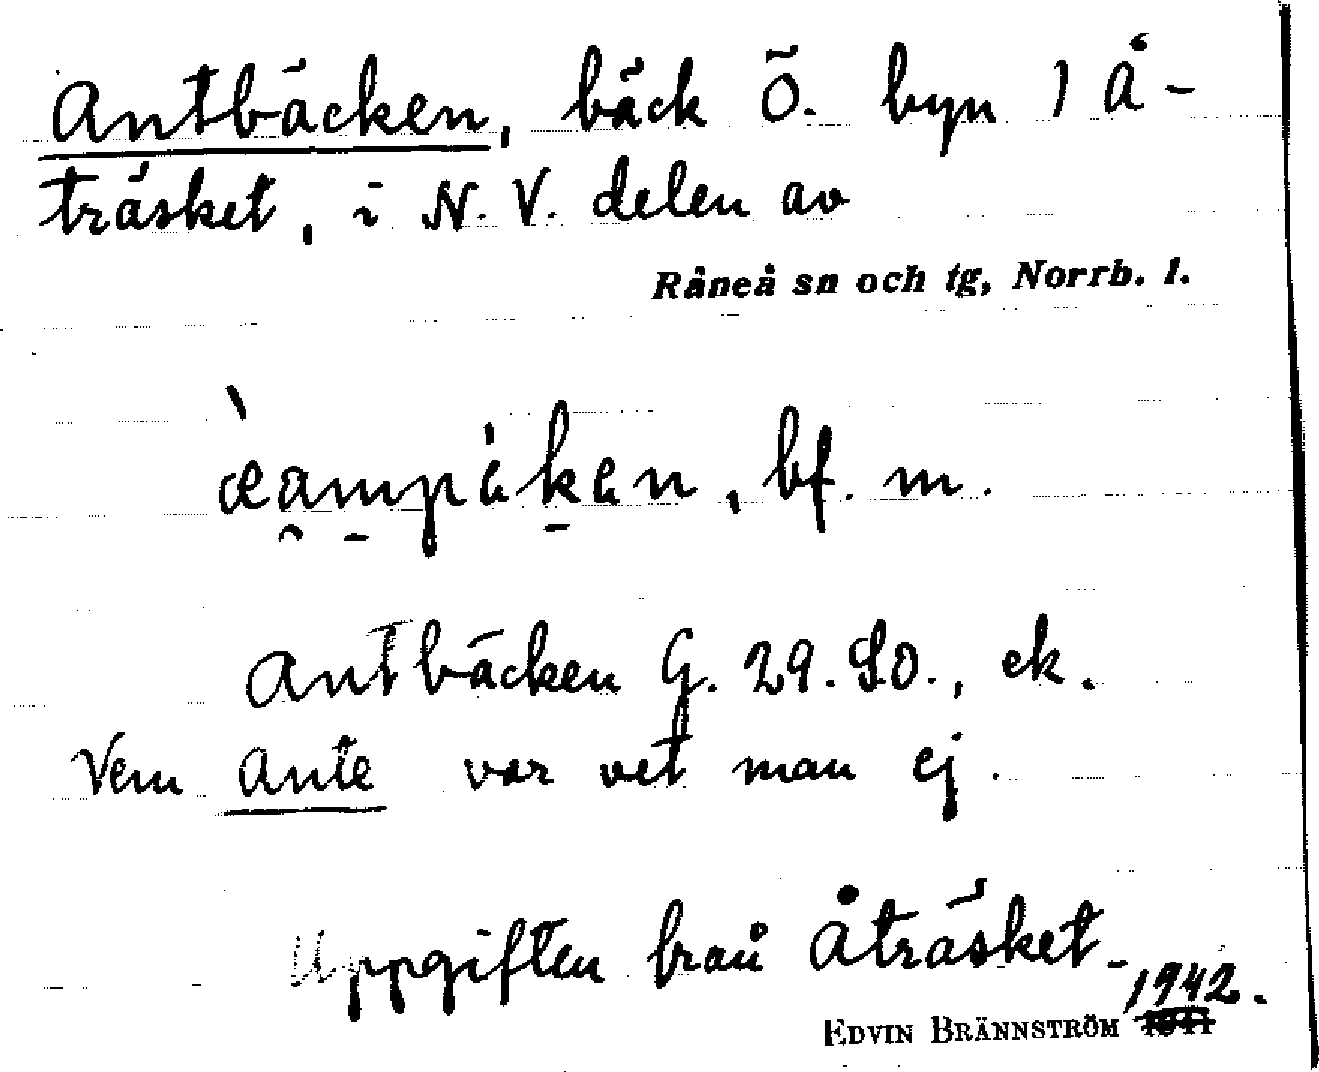 Antbäcken, bäck Ö. byn i Å-
träsket, i N. V. delen av
Råneå sn och tg, Norrb. l.
bf. m.
Antbäcken G. 29. SO., ek.
Vem Ante var vet man ej.
Uppgiften från Åträsket.
1942.
EDVIN BRÄNNSTRÖM 1941